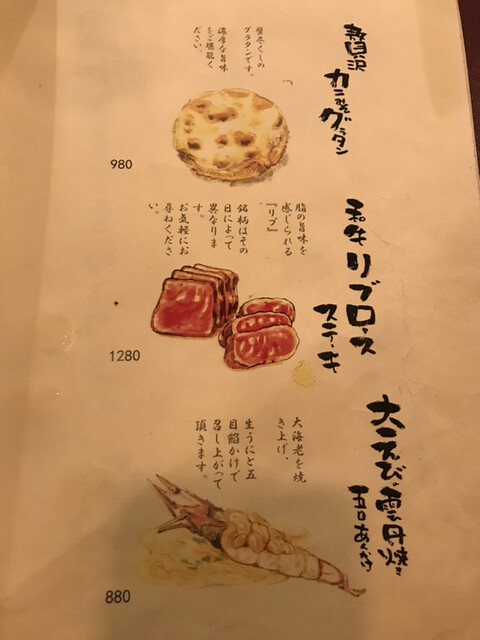 贅沢
カニみそグラタン
蟹尽くしの
グラタンです。
濃厚な旨味
をご堪能く
ださい。
980
和牛リブロース
ステーキ
脂の旨味を
感じられる
『リブ』
銘柄はその
日によって
異なりま
す。
お気軽にお
尋ねくださ
い。
1280
大えび雲丹焼き
五目あんかけ
大海老を焼
き上げ、
生うにと五
目餡かけで
召し上がって
頂きます。
880